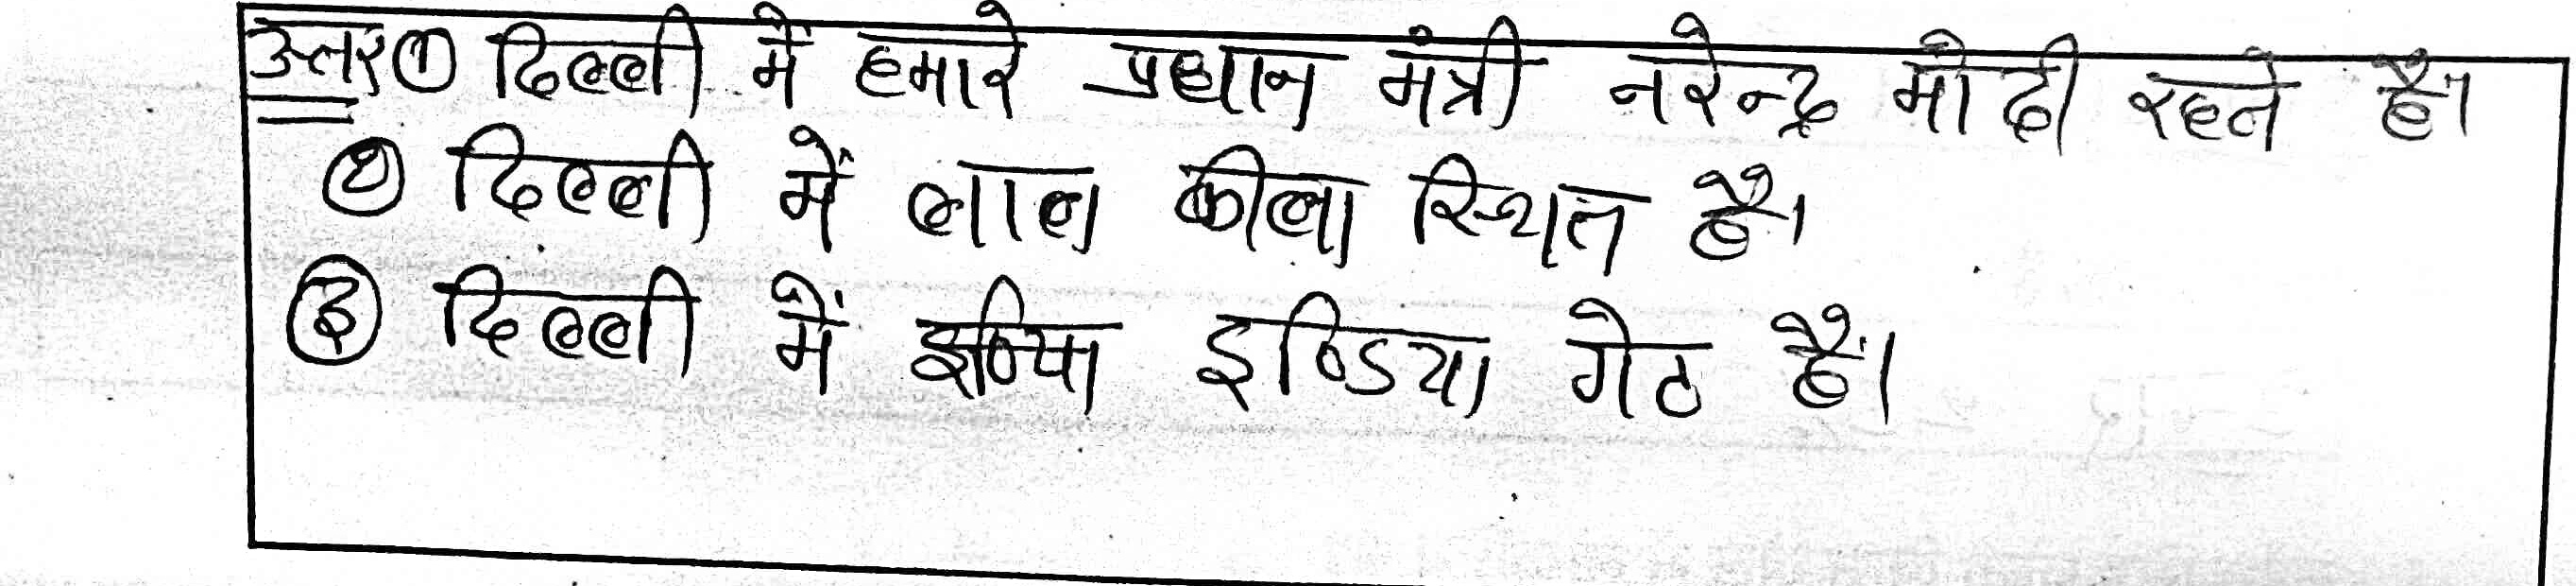 उत्तर① दिल्ली में हमारे प्रधान मंत्री नरेन्द्र मोदी रहते है।
② दिल्ली में लाल कीला स्थित है।
③ दिल्ली में इण्डिया गेठ हैं।